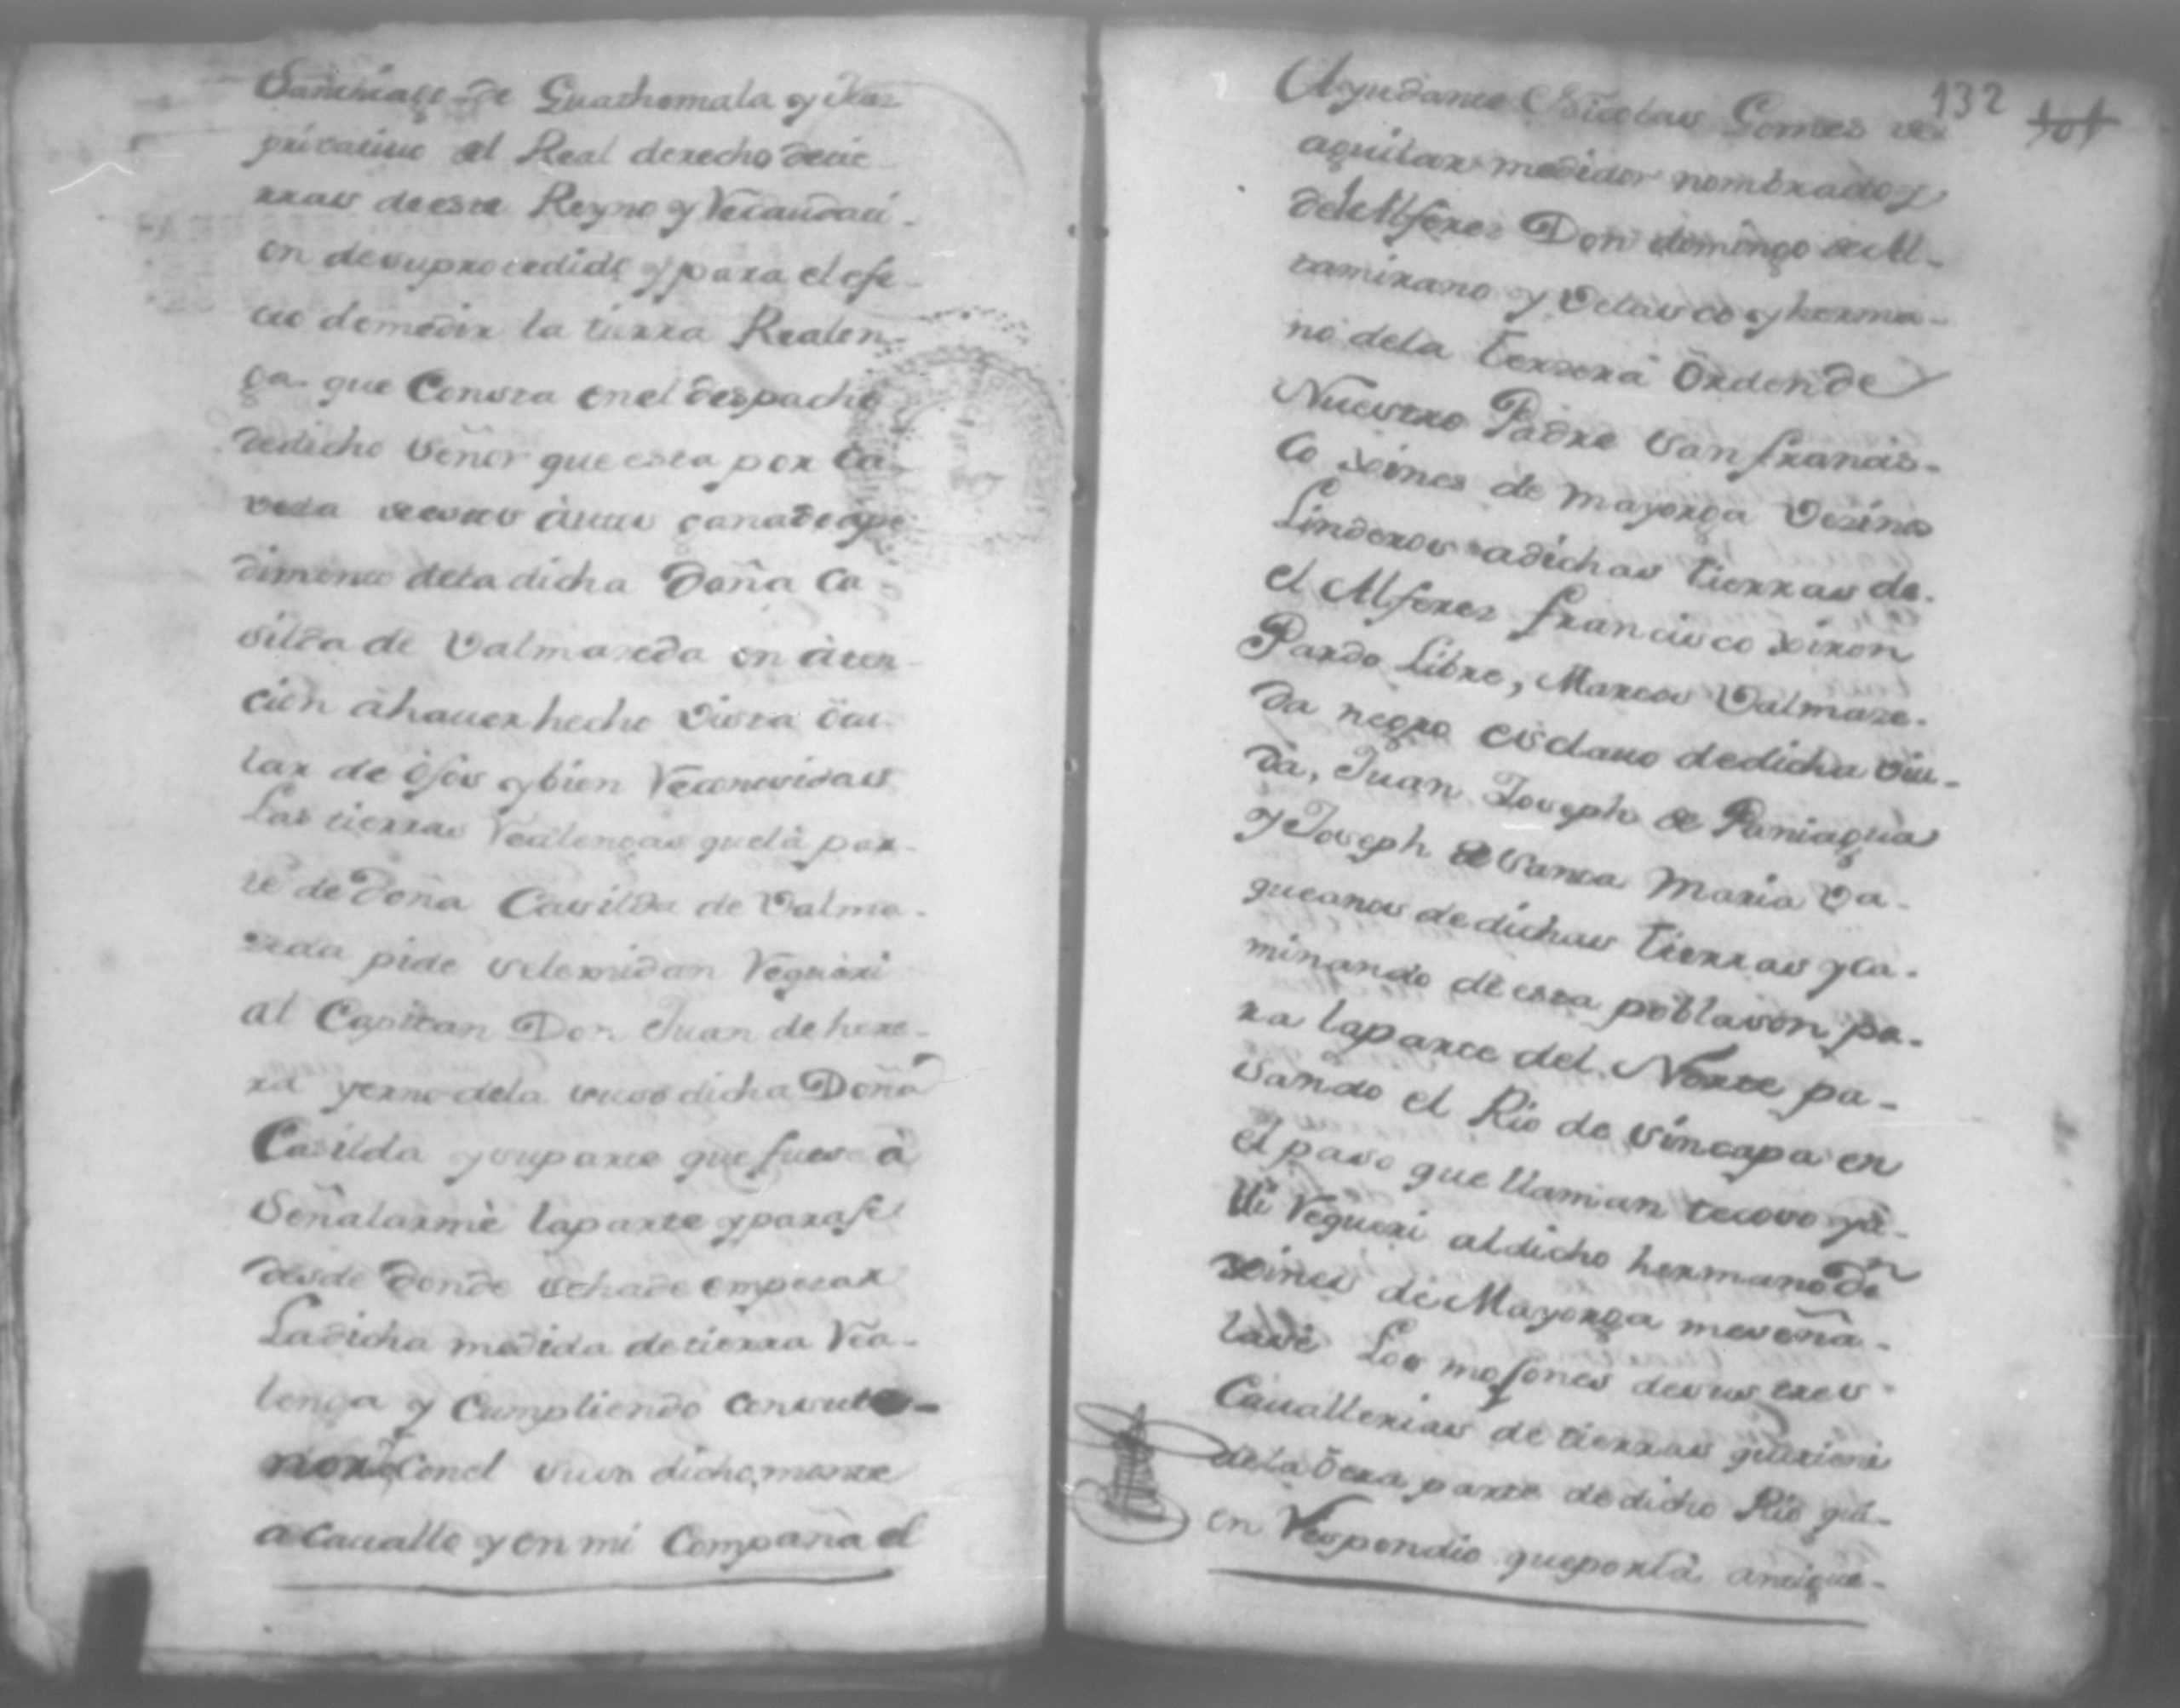 Santiago de Guathemala y Jues
pribatiuo del Real derecho detie
rras deeste Reyno y Recaudaci-
on desuprocedido y para el efe-
cto demedir la tierra Realen-
ga que Consta enel despacho
dedicho Señor que esta por ca-
vesa destos autos ganadoape
dimento deladicha Doña Ca
silda de Valmaseda en aten-
cion ahauer hecho Vista ocu-
lar de ojos y bien Reconosidas
Las tierras Realengas quela par-
te de Doña Casilda de Valma-
seda pide selemidan Requeri
al Capitan Don Juan de here-
ra yerno dela suso dicha Doña
Casilda ysuparte que fuese à
Señalarmè laparte y paraje
desde donde sehade empesar
Ladicha medida detierra Rea-
lenga y Cumpliendo consute-
nor Conel suso dicho, monte
acauallo y en mi Compaña el
132 101
Ayudante Nicolas Gomes de
aguilar medidor nombrado y
delAlferes Don domingo de Al-
tamirano y Velasco y herma-
no dela terzera Orden de
Nuestro Padre San francis-
co xines de mayorga Vesinos
Linderos adichas tierras de
el Alferes francisco xiron
Pardo Libre, Marcos Valmase-
da negro esclauo dedicha viu-
da, Juan Joseph de Paniagua
y Joseph de Santa Maria Va-
queanos dedichas tierras yca-
minando de esta poblason pa-
ra laparte del Norte pa-
sando el Rio de sincapa en
el paso que llaman tecoso ya-
lli Requeri aldicho hermano Dn
xines de Mayorga meseña-
lase Los mojones desus tres
Cauallerias de tierras quetiene
dela otra parte dedicho Rio qui-
en Respondio queporla antigue-